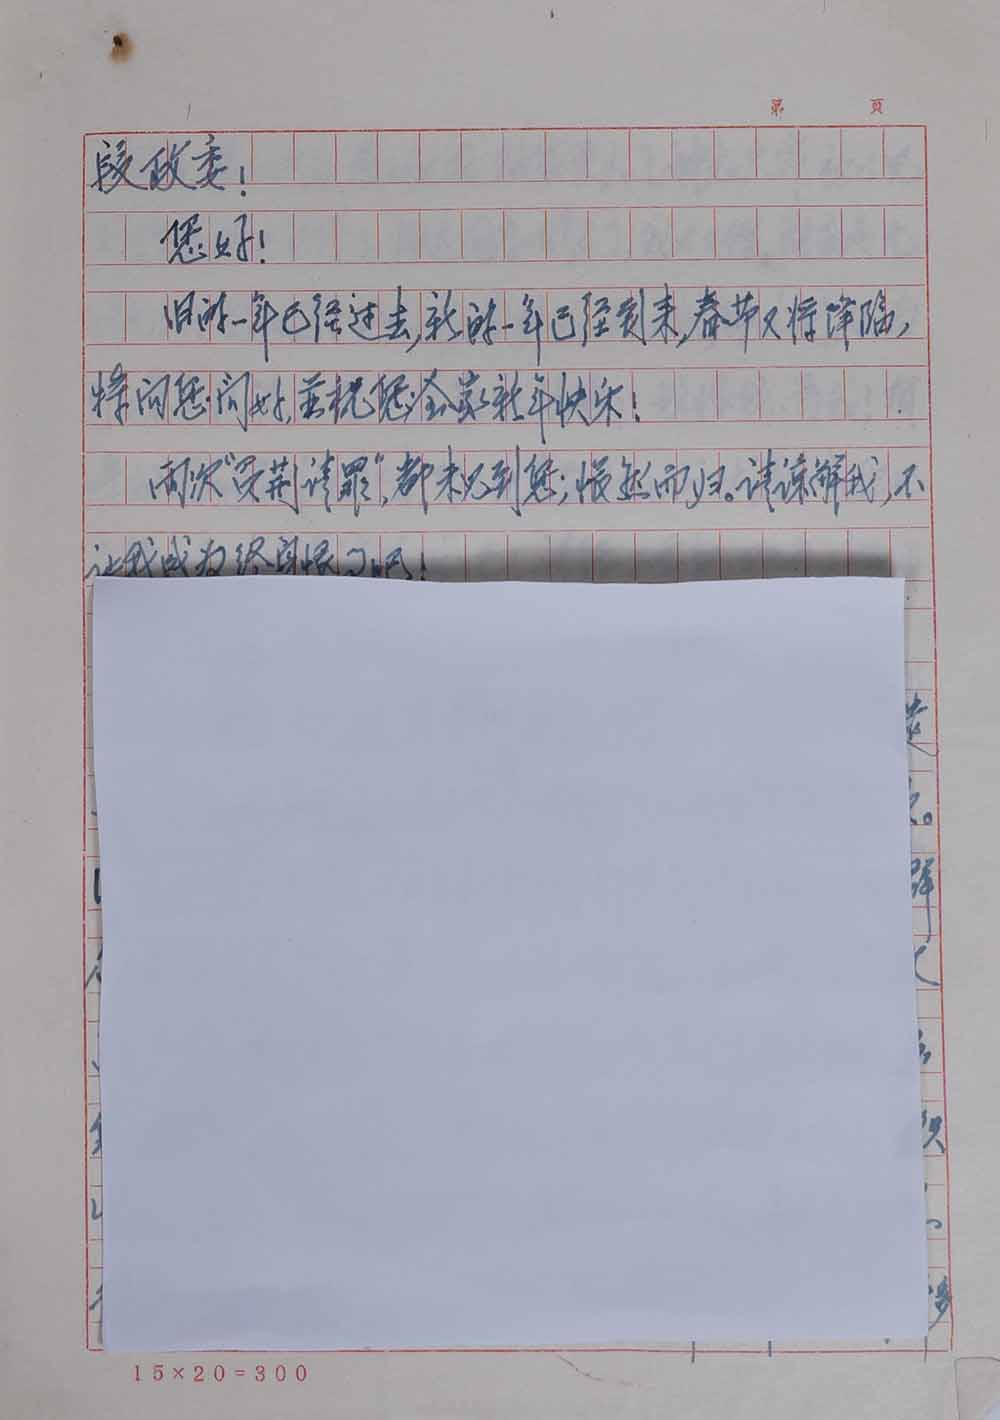 第 页
段政委！
您好！
旧的一年已经过去，新的一年已经到来，春节又将降临，
特向您问好，并祝您全家新年快乐！
两次“负荆请罪”，都未见到您；怅然而归。请谅解我，不
让我成为终身恨事吧！
群
15×20=300